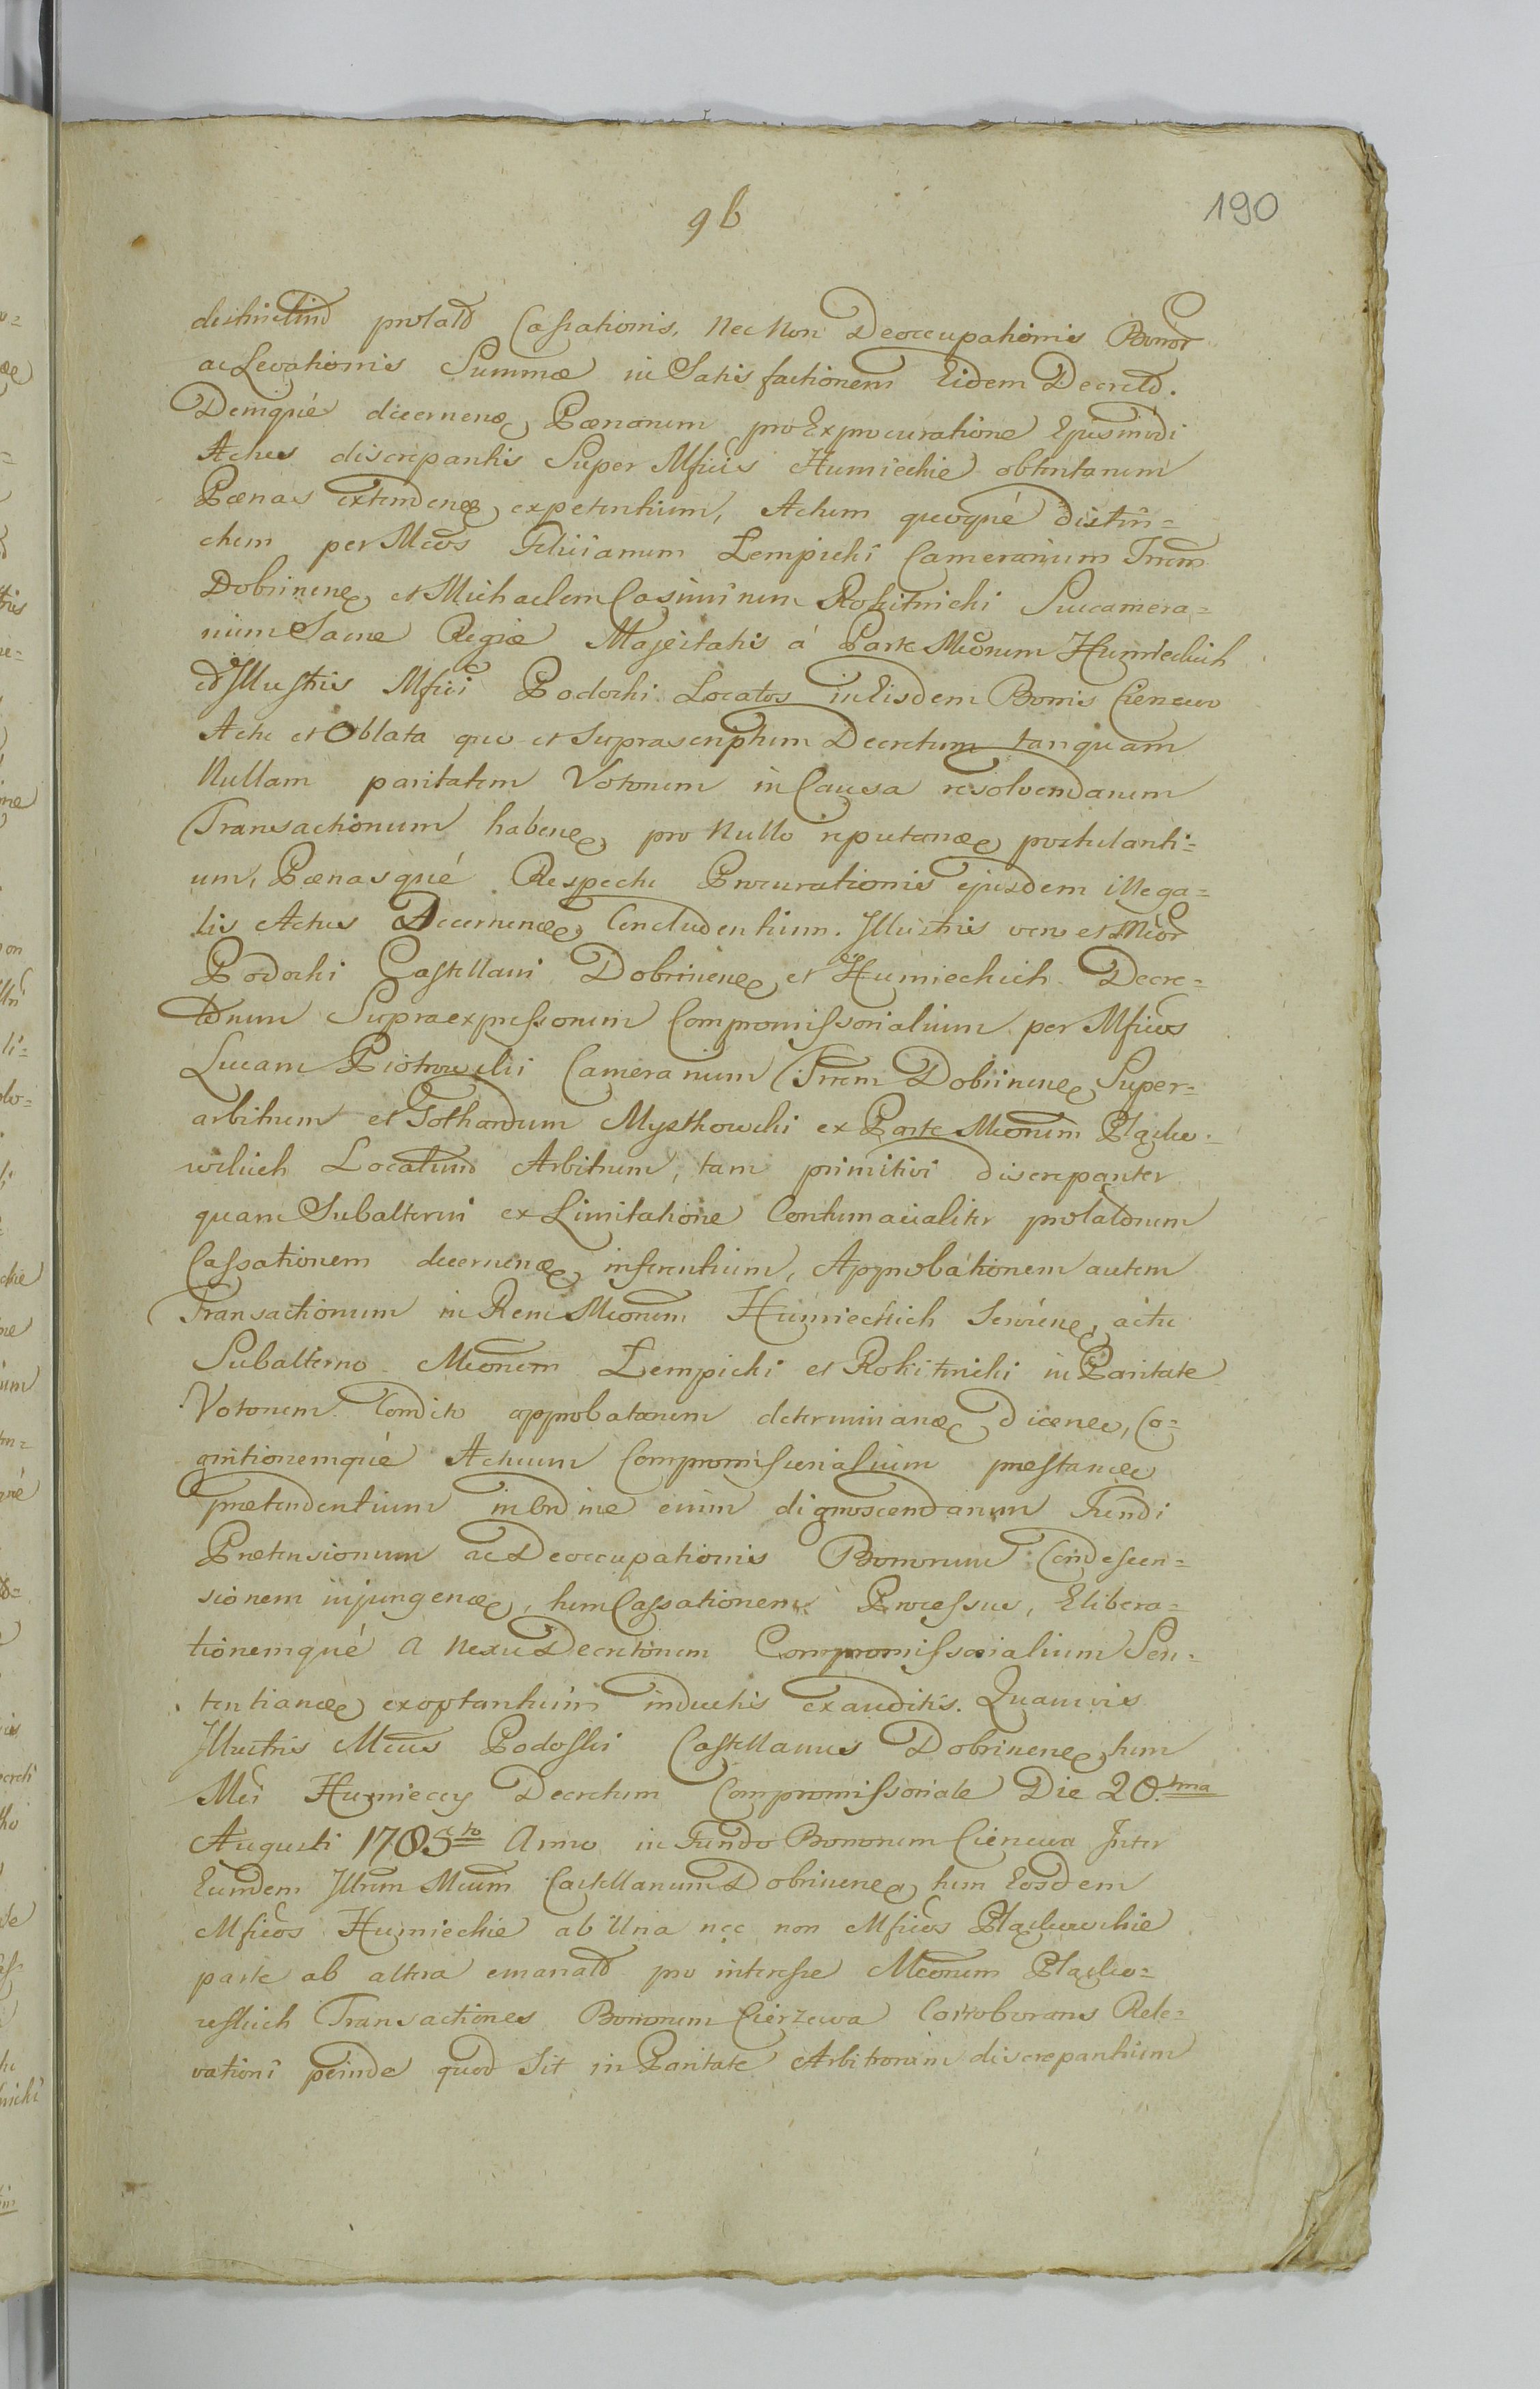 9b
190
distinctim prolati Cassationis, Nec Non Deoccupationis Bonor
ac Levationis Summæ in Satisfactionem Eidem Decreto.
Demiqué dicernen Pœnarum pro Exprocuratione Ejusmodi
Actus discrepantis Super Mficis Humieckie obtentarum
Pœnas extendenn expetentium, Actum quoqué distin=
ctum per Mcos Felicianum Lempicki Camerarium Trrem
Dobrinen et Michaelem Casimirum Rokitnicki Succamera=
rium Sacræ Regiæ Majestatis á Parte Mcorum Humieckich
et Illustris Mfici Podoski Locatos in Eisdem Bonis Cierzewo
Actu et Oblata quo et Suprascriptum Decretum tanquam
Nullam paritatem Votorum in Causa resolvendarum
Transactionum haben pro Nullo reputan postulanti=
um, Pœnasqué Respectu Procurationis ejusdem illega=
lis Actus Decernen Concludentium. Illustris vero et Mcor
Podoski Castellani Dobrinen et Humieckich Decre=
torum Supraexpressorum Compromissorialium per Mficos
Lucam Piotrowski Camerarium Trrem Dobrinen Super=
arbitrum et Gothardum Mystkowski ex Parte Mcorum Placko=
wskich Locatum Arbitrum, tam primitivi discrepanter
quam Subalterni ex Limitatione Contumacialiter prolatorum
Cassationem decernen inferentium, Approbationem autem
Transactionum in Rem Mcorum Humieckich Servien, actu
Subalterno Mcorum Lempicki et Rokitnicki in Paritate
Votorum Condito approbatarum determinan Dicen, Co=
gnitionemqué Actuum Compromissorialium præstan
prætendentium in Ordine enim dignoscendarum Fundi
Prætensionum ac Deoccupationis Bonorum Condescen=
sionem injungen, tum Cassationem Processus, Elibera=
tionemqué a Nexu Decretorum Compromissorialium Sen=
tentian exoptantium inductis exauditis. Quamvis
Illustris Mcus Podoski Castellanus Dobrinen, tum
Mci Humieccy Decretum Compromissoriale Die 20.tma
Augusti 1785to Anno in Fundo Bonorum Cierzewa Inter
Eundem Illrem Mcum Castellanum Dobrinen, tum Eosdem
Mficos Humieckie ab Una nec non Mficos Plackowskie
parte ab altera emanato pro interesse Mcorum Placko=
wskich Transactiones Bonorum Cierzewa Corroborans Rele=
vationi perinde quod Sit in Paritate Arbitrorum discrepantium